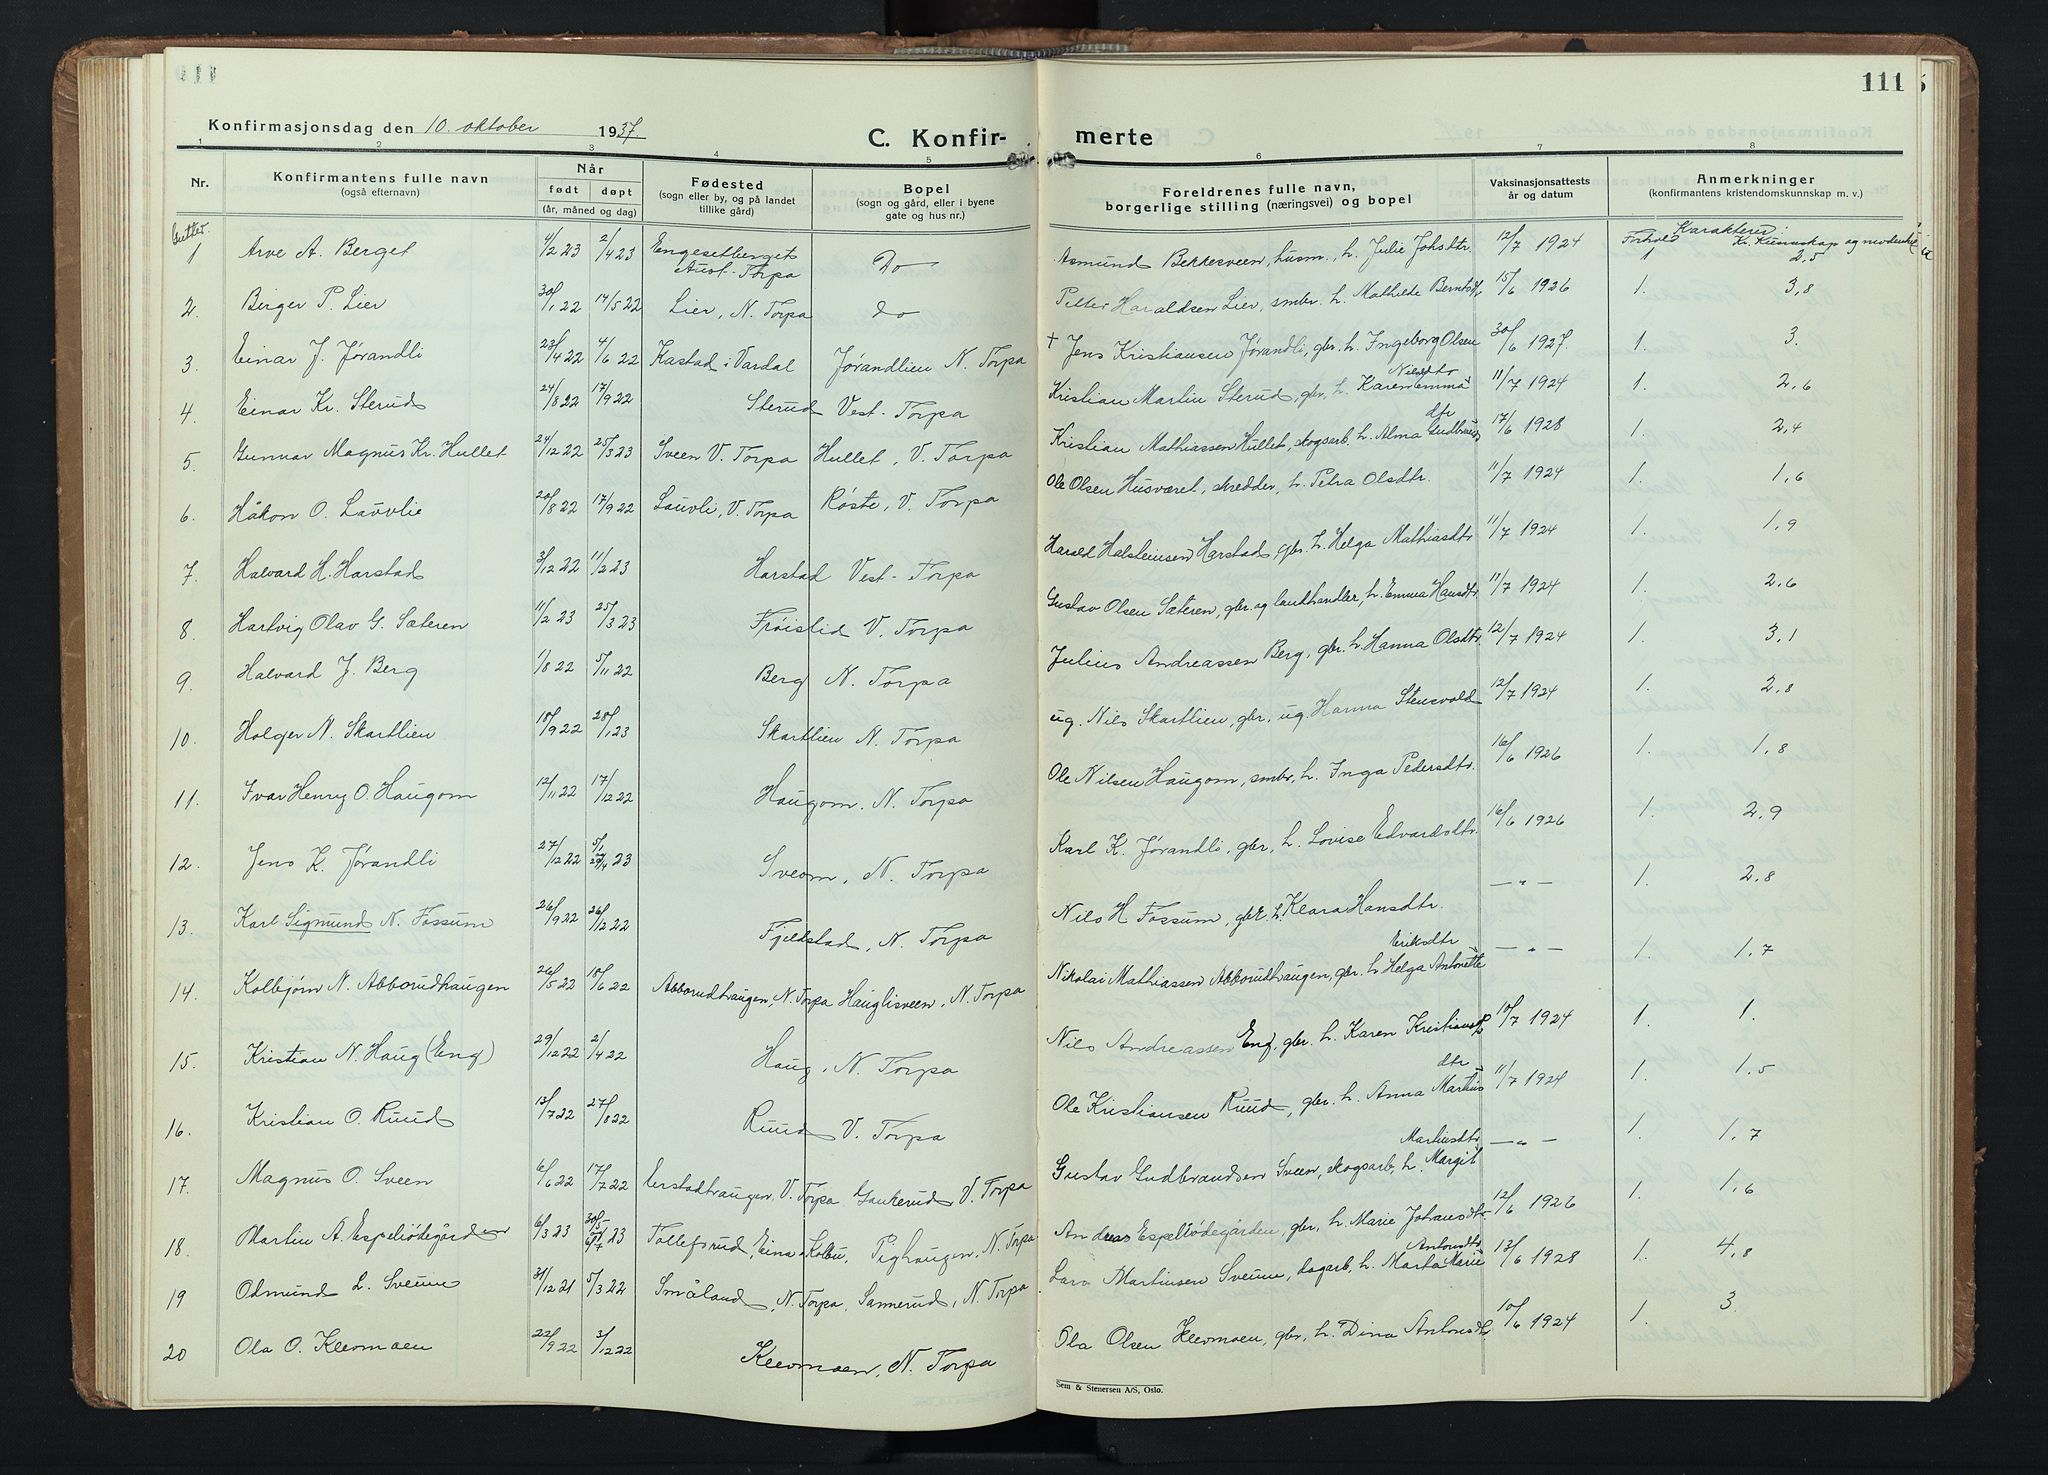 111
Konfirmasjonsdag den 10. oktober 1937.
C. Konfir- merte
1 2 3 4 5 6 7 8
Nr.
Konfirmantens fulle navn
(også efternavn)
Når
født døpt
(år, måned og dag)
Fødested
(sogn eller by, og på landet
tillike gård)
Bopel
(sogn og gård, eller i byene
gate og hus nr.)
Foreldrenes fulle navn,
borgerlige stilling (næringsvei) og bopel
Vaksinasjonsattests
år og datum
Anmerkninger
(konfirmantens kristendomskunnskap m. v.)
Gutter.
Karakterer:
Forhold Kr. kunnskap og modenhet
1 Arve A. Berget 4/2 23 2/4 23 Engesetberget Aust-Torpa Do Asmund Bekkesveen, husm., h. Julie Johsdtr 12/7 1924 1 2,5
2. Birger P. Lier 30/1 22 14/5 22 Lier, N. Torpa do Petter Haraldsen Lier, smbr. h. Mathilde Berntsdtr 15/6 1926 1. 3,8
3. Einar J. Jørandli 23/4 22 4/6 22 Kastad i Vardal Jørandlien N. Torpa + Jens Kristiansen Jørandli, gbr. h. Ingeborg Olsen 30/6 1927. 1. 3.
4 Einar Kr. Sterud 24/8 22 17/9 22 Sterud Vest-Torpa Kristian Martin Sterud, gbr, h. Karen Emma Nilsdtr 11/7 1924 1. 2,6
5. Gunnar Magnus Kr. Hullet 24/12 22 25/3 23 Sveen V. Torpa Hullet, V. Torpa Kristian Mathiassen Hullet, skogsarb, h. Alma Gudbrands dtr 17/6 1928 1. 2,4
6. Håkon O. Lauvlie 20/8 22 17/9 22 Lauvli, V. Torpa Røste, V. Torpa Ole Olsen Husværet, skredder, h. Petra Olsdtr. 11/7 1924 1. 1,6
7. Halvard H. Harstad 3/12 22 11/2 23 Harstad Vest-Torpa Harald Halsteinsen Harstad, gbr. h. Helga Mathiasdtr 11/7 1924 1. 1,9
8. Hartvig Olav G. Sæteren 11/2 23 25/3 23 Frøislid V. Torpa Gustav Olsen Sæteren, gbr og landhandler, h. Emma Hansdtr. 11/7 1924 1. 2,6
9. Halvard J. Berg 1/8 22 5/11 22 Berg N. Torpa Julius Andreassen Berg, gbr. h. Hanna Olsdtr. 12/7 1924 1. 3,1
10. Holger N. Skartlien 18/9 22 28/1 23 Skartlien N. Torpa ug. Nils Skartlien, gbr, ug. Hanna Stensvold 12/7 1924 1. 2,8
11. Ivar Henry O. Haugom 12/11 22 17/12 22 Haugom, N. Torpa Ole Nilsen Haugom, smbr, h. Inga Pedersdtr. 16/6 1926 1. 1,8
12. Jens K. Jørandli 27/12 22 5/1 29/4 23 Sveom, N. Torpa Karl K. Jørandli, gbr, h. Lovise Edvardsdtr. 16/6 1926 1. 2,9
13. Karl Sigmund N. Fossum 26/9 22 26/12 22 Fjeldstad, N. Torpa Nils H Fossum, gbr. h. Klara Hansdtr. — „ — 1. 2,8
14. Kolbjørn N. Abborudhaugen 26/5 22 18/6 22 Abborudhaugen, N. Torpa Hauglisveen, N. Torpa Nikolai Mathiassen Abborudhaugen, gbr. h Helga Antonette Eriksdtr — „ — 1. 1,7
15. Kristian N. Haug (Eng) 29/12 22 2/4 22 Haug, N. Torpa Nils Andreassen Eng, gbr. h. Karen Kristiansdtr 10/7 1924 1. 1.
16. Kristian O. Ruud 13/7 22 27/8 22 Ruud V. Torpa Ole Kristiansen Ruud, gbr. h. Anna Martins dtr 11/7 1924 1. 1,5
17. Magnus O. Sveen 6/6 22 17/7 22 Eerstadhaugen, V. Torpa Gaukerud V. Torpa Gustav Gudbrandsen Sveen, skogsarb, h. Margit Martinsdtr — „ — 1. 1,7
18. Martin A. Espeliødegården 6/3 23 Tollefsrud, Eina, Kolbu, Pighaugen, N. Torpa Andreas Espeliødegården, gbr, h. Marie Johansdtr 12/6 1926 1. 1,6
19 Odmund L. Sveum 31/12 21 5/3 22 Småland, N. Torpa, Sannerud, N. Torpa Lars Martinsen Sveum, dagarb, h. Marta Marie Antonsdtr 13/6 1928 1. 4,8
20 Ola O. Klevmoen 22/9 22 3/12 22 Klevmoen, N. Torpa Ola Olsen Klevmoen, gbr, h. Dina Antonsdtr 10/6 1924 1. 3.
Sem & Stenersen A/S, Oslo.